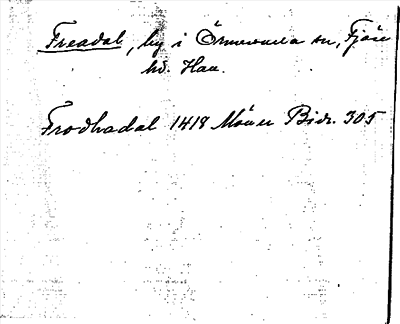 Freadal, by i Örmevalla sn, Fjäre
hd. Hall.
Frodhadal 1418 Mörner Bidr. 305